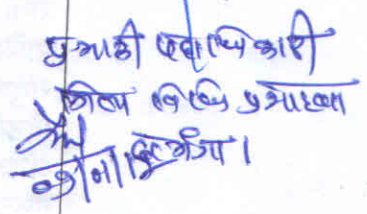 प्रभारी पदाधिकारी
जिला विधि प्रशाखा
दरभंगा।